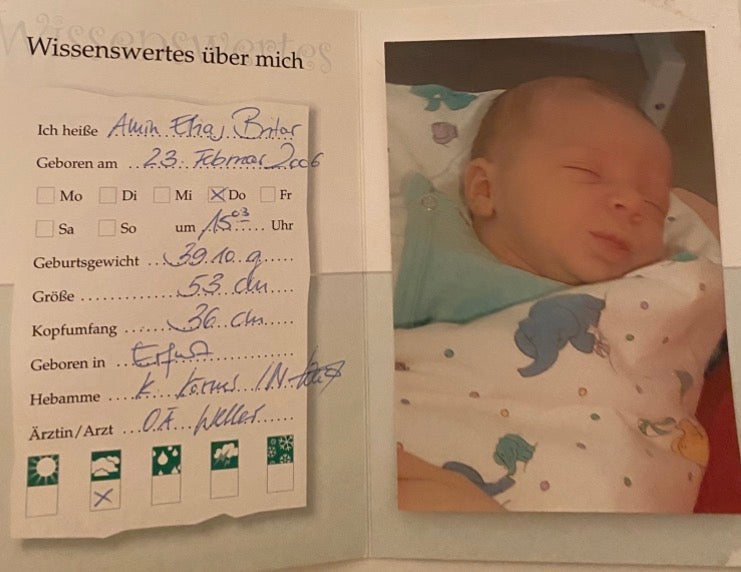 Wissenswertes über mich
Ich heiße Amin Elias Bitar
Geboren am 23. Februar 2006
Mo Di Mi Do Fr
Sa So um 15 03 Uhr
Geburtsgewicht 3910 g
Größe 53 cm
Kopfumfang 36 cm
Geboren in Erfurt
Hebamme K.
Ärztin/Arzt O.Ä. Weller